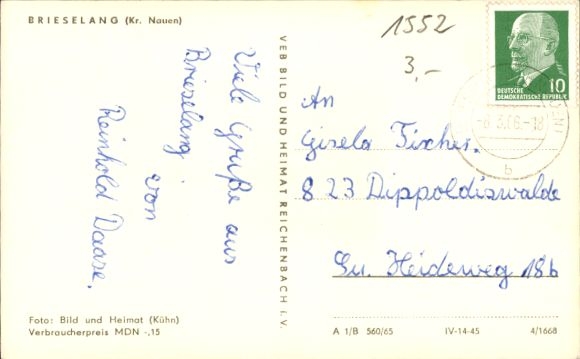 BRIESELANG (Kr. Nauen)
Viele Grüße aus
Brieselang
von
Reinhold Daase.
Foto: Bild und Heimat (Kühn)
Verbraucherpreis MDN -,15
VEB BILD UND HEIMAT REICHENBACH i. V.
1552
3,-
10
DEUTSCHE
DEMOKRATISCHE REPUBLIK
-8.3.66.-18
b
An
Gisela Fischer.
823 Dippoldiswalde
Heideweg 18b
A 1/B 560/65 IV-14-45 4/1668